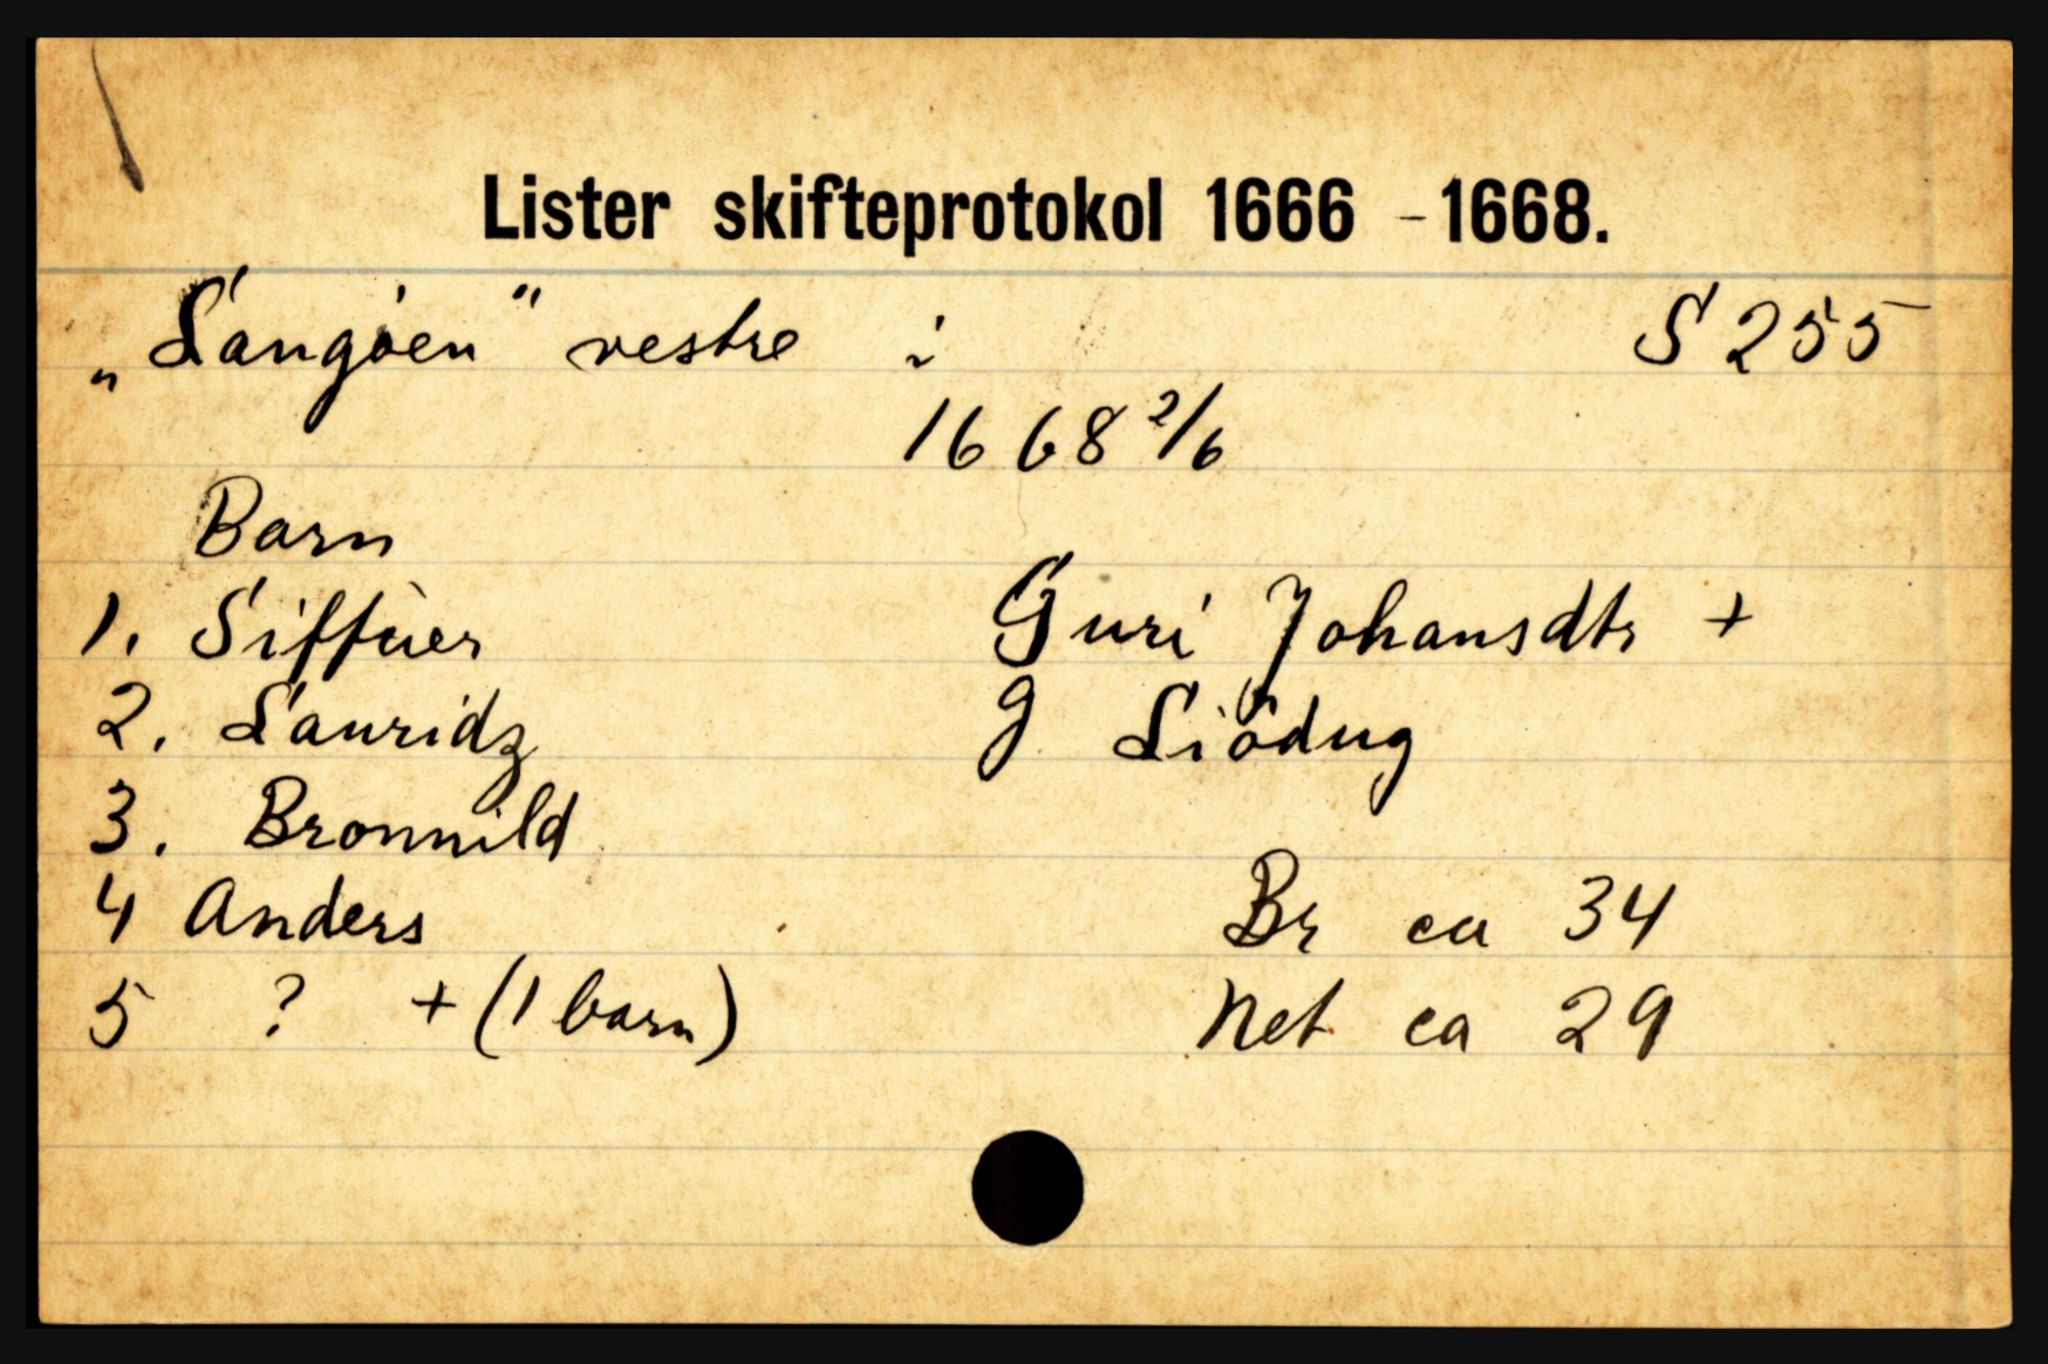 Lister skifteprotokol 1666 - 1668.
„Langøen" vestre i S 255
1668 2/6
Barn
1. Siffuer Guri Johansdtr +
2. Lauridz g Liödug
3. Bronnild
4 Anders Br ca 34
5 ? + (1 barn) Net ca 29